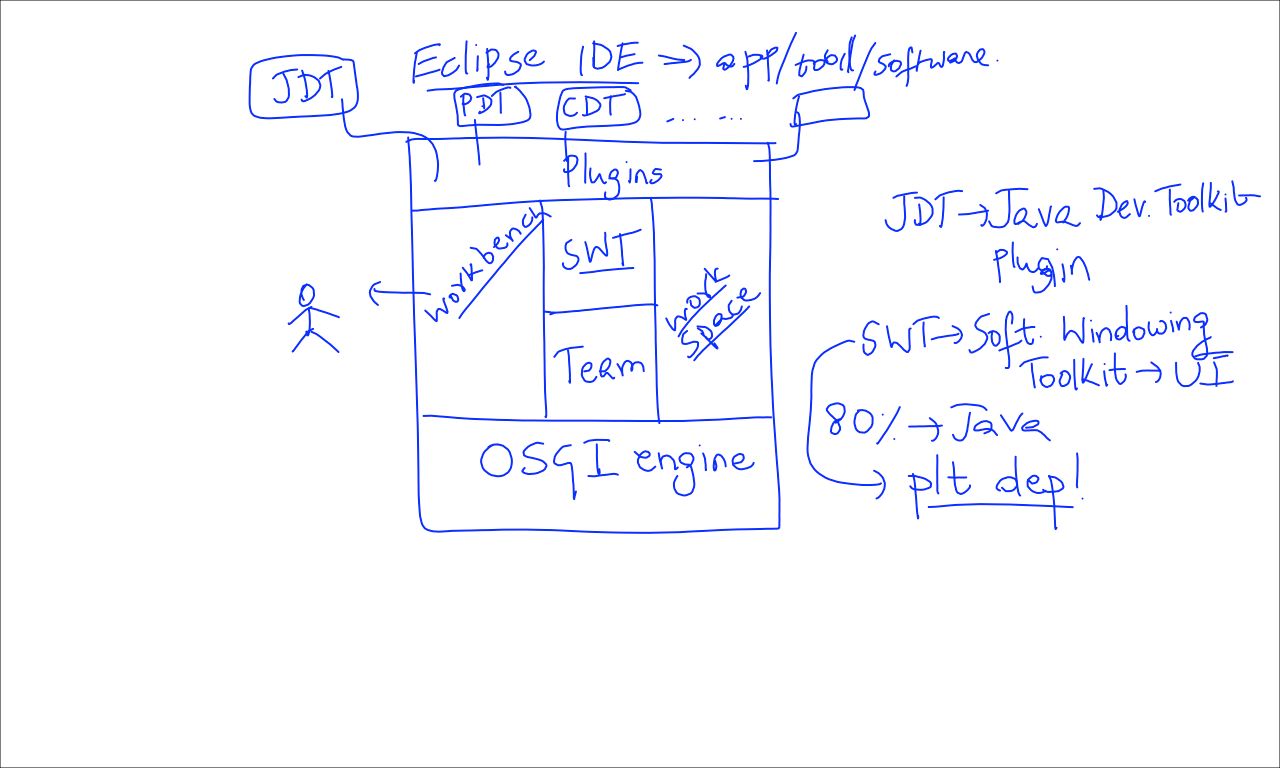 Eclipse IDE => app/tool/software.
JDT
PDT
CDT
... ...
Plugins
Workbench
SWT
Team
Work
Space
OSGI engine
JDT → Java Dev. Toolkit
plugin
SWT → Soft. Windowing
Toolkit → UI
80% → Java
→ plt dep!